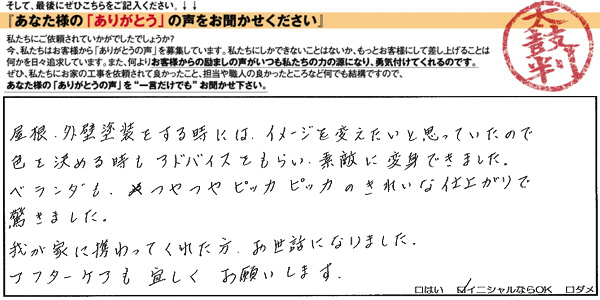 そして、最後にぜひこちらをご記入ください。↓↓
『あなた様の「ありがとう」の声をお聞かせください』
私たちにご依頼されていかがでしたでしょうか?
今、私たちはお客様から「ありがとうの声」を募集しています。私たちにしかできないことはないか、もっとお客様にして差し上げることは
何かを日々追求しています。また、何よりお客様からの励ましの声がいつも私たちの力の源になり、勇気付けてくれるのです。
ぜひ、私たちにお家の工事を依頼されて良かったこと、担当や職人の良かったところなど何でも結構ですので、
あなた様の「ありがとうの声」を“一言だけでも”お聞かせ下さい。
太鼓判
屋根、外壁塗装をする時には、イメージを変えたいと思っていたので
色を決める時もアドバイスをもらい、素敵に変身できました。
ベランダも、つやつやピッカピッカのきれいな仕上がりで
驚きました。
我が家に携わってくれた方、お世話になりました。
アフターケアも宜しくお願いします。
□はい ☑イニシャルならOK □ダメ